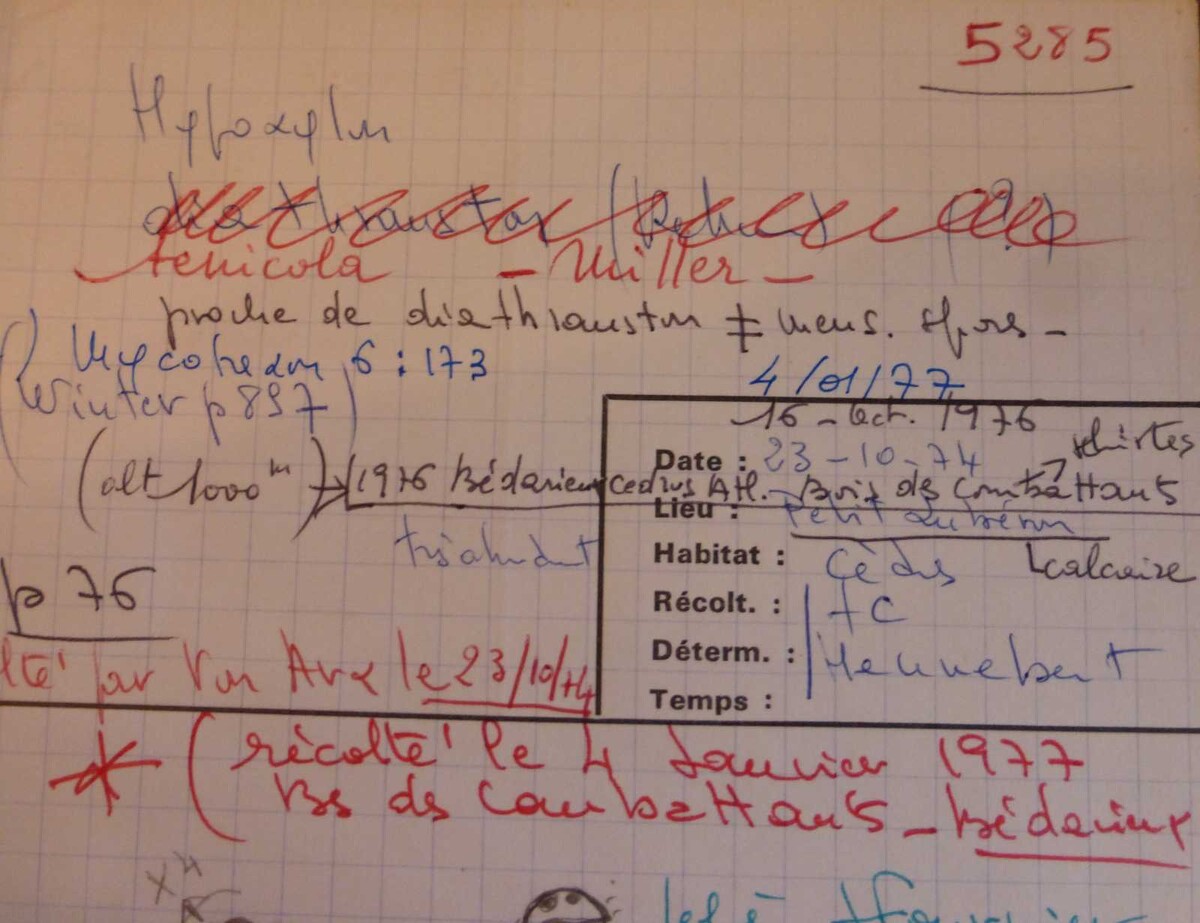 5285
Hypoxylon
diathrauston (Rehm)
terricola - Miller -
proche de diathrauston ≠ mens. spores -
Mycotheam 6 : 173
4/01/77
(Winter p 897)
16 - Oct. 1976
Date : 23-10-74
schistes
(alt 1000 m) → 1976 Bédarieux Cedrus Atl. - Bois des Combattants
Lieu : Petit Luberon
très abondant
Habitat : Cèdres calcaire
p 76
Récolt. : FC
Déterm. : Hennebert
lté par Von Arx le 23/10/74
Temps :
* (récolté le 4 Janvier 1977
Bs ds Combattants - Bédarieux
x 4